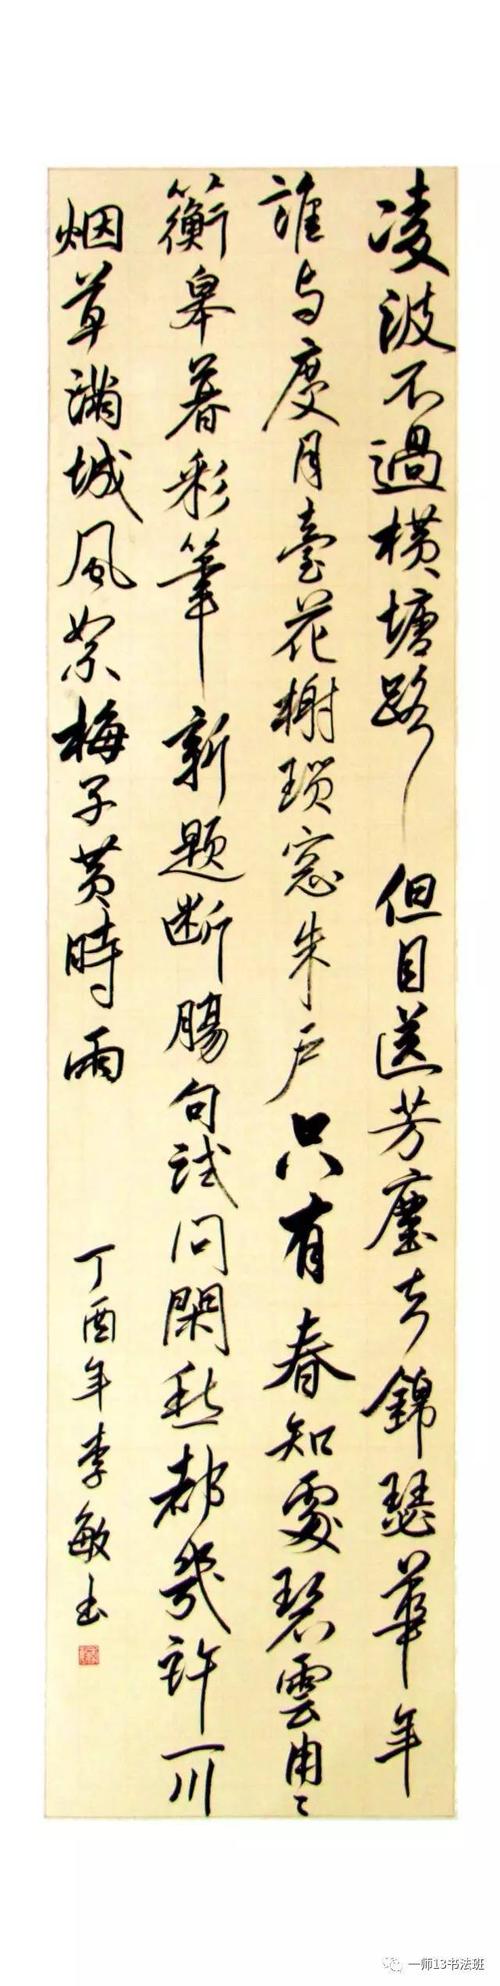 凌波不過横塘路但目送芳塵去錦瑟華年
誰与度月臺花榭瑣窓朱户只有春知處碧雲冉〻
蘅皋暮彩筆新题断腸句试問閑愁都幾许一川
烟草满城風絮梅子黄時雨
丁酉年李敏书
一师13书法班